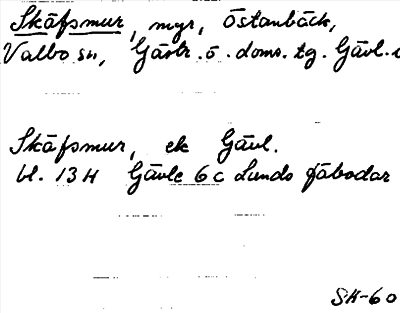 Skäfsmur, myr, Östanbäck,
Valbo sn, Gästr. ö. doms. tg. Gävl.
Skäfsmur, ek Gävl.
bl. 13H Gävle 6c Lunds fäbodar
SH-60